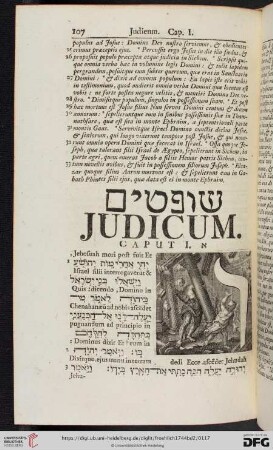 107 Judicum. Cap. I.
populus ad Josue: Domino Deo nostro serviemus, & obedientes
erimus præceptis ejus. Percussit ergo Josue in die illa fœdus, &
proposuit populo præcepta atque judicia in Sichem. Scripsit quo-
que omnia verba hæc in volumine legis Domini: & tulit lapidem
pergrandem, posuitque eum subter quercum, quæ erat in Sanctuario
Domini: & dixit ad omnem populum: En lapis iste erit vobis
in testimonium, quod audierit omnia verba Domini quæ locutus est
vobis: ne forte postea negare velitis, & mentiri Domino Deo ve-
stro. Dimisitque populum, singulos in possessionem suam. Et post
hæc mortuus est Josue filius Nun servus Domini centum & decem
annorum: sepelieruntque eum in finibus possessionis suæ in Tham-
nathsare, quæ est sita in monte Ephraim, a septentrionali parte
montis Gaas. Servivitque Israel Domino cunctis diebus Josue,
& seniorum, qui longo vixerunt tempore post Josue, & qui nove-
runt omnia opera Domini quæ fecerat in Israel. Ossa quoque Jo-
seph, quæ tulerant filii Israel de Ægypto, sepelierunt in Sichem, in
parte agri, quem emerat Jacob a filiis Hemor patris Sichem, cen-
tum novellis ovibus, & fuit in possessionem filiorum Joseph. Elea-
zar quoque filius Aaron mortuus est: & sepelierunt eum in Ga-
baath Phinees filii ejus, quæ data est ei in monte Ephraim.
שופטים
JUDICUM.
CAPUT I. א
Jehosuah mori post fuit Et
ויהי אחרי מות יהושע
Israel filii interrogaverunt &
וישאלו בני ישראל
Quis: dicendo, Domino in
ביהוה לאמר מי
Chenahanæu ad nobis ascendet
יעלה לנו אל הכנעני
pugnandum ad principio in
Dominus dixit Et eum in
בו: ויאמר יהוה
dedi Ecce ascendet Jehudah
יהודה יעלה הנה נתתי את הארץ בידו: ויאמר
Jehu-
https://digi.ub.uni-heidelberg.de/diglit/freiFIilch1744bd2/0117